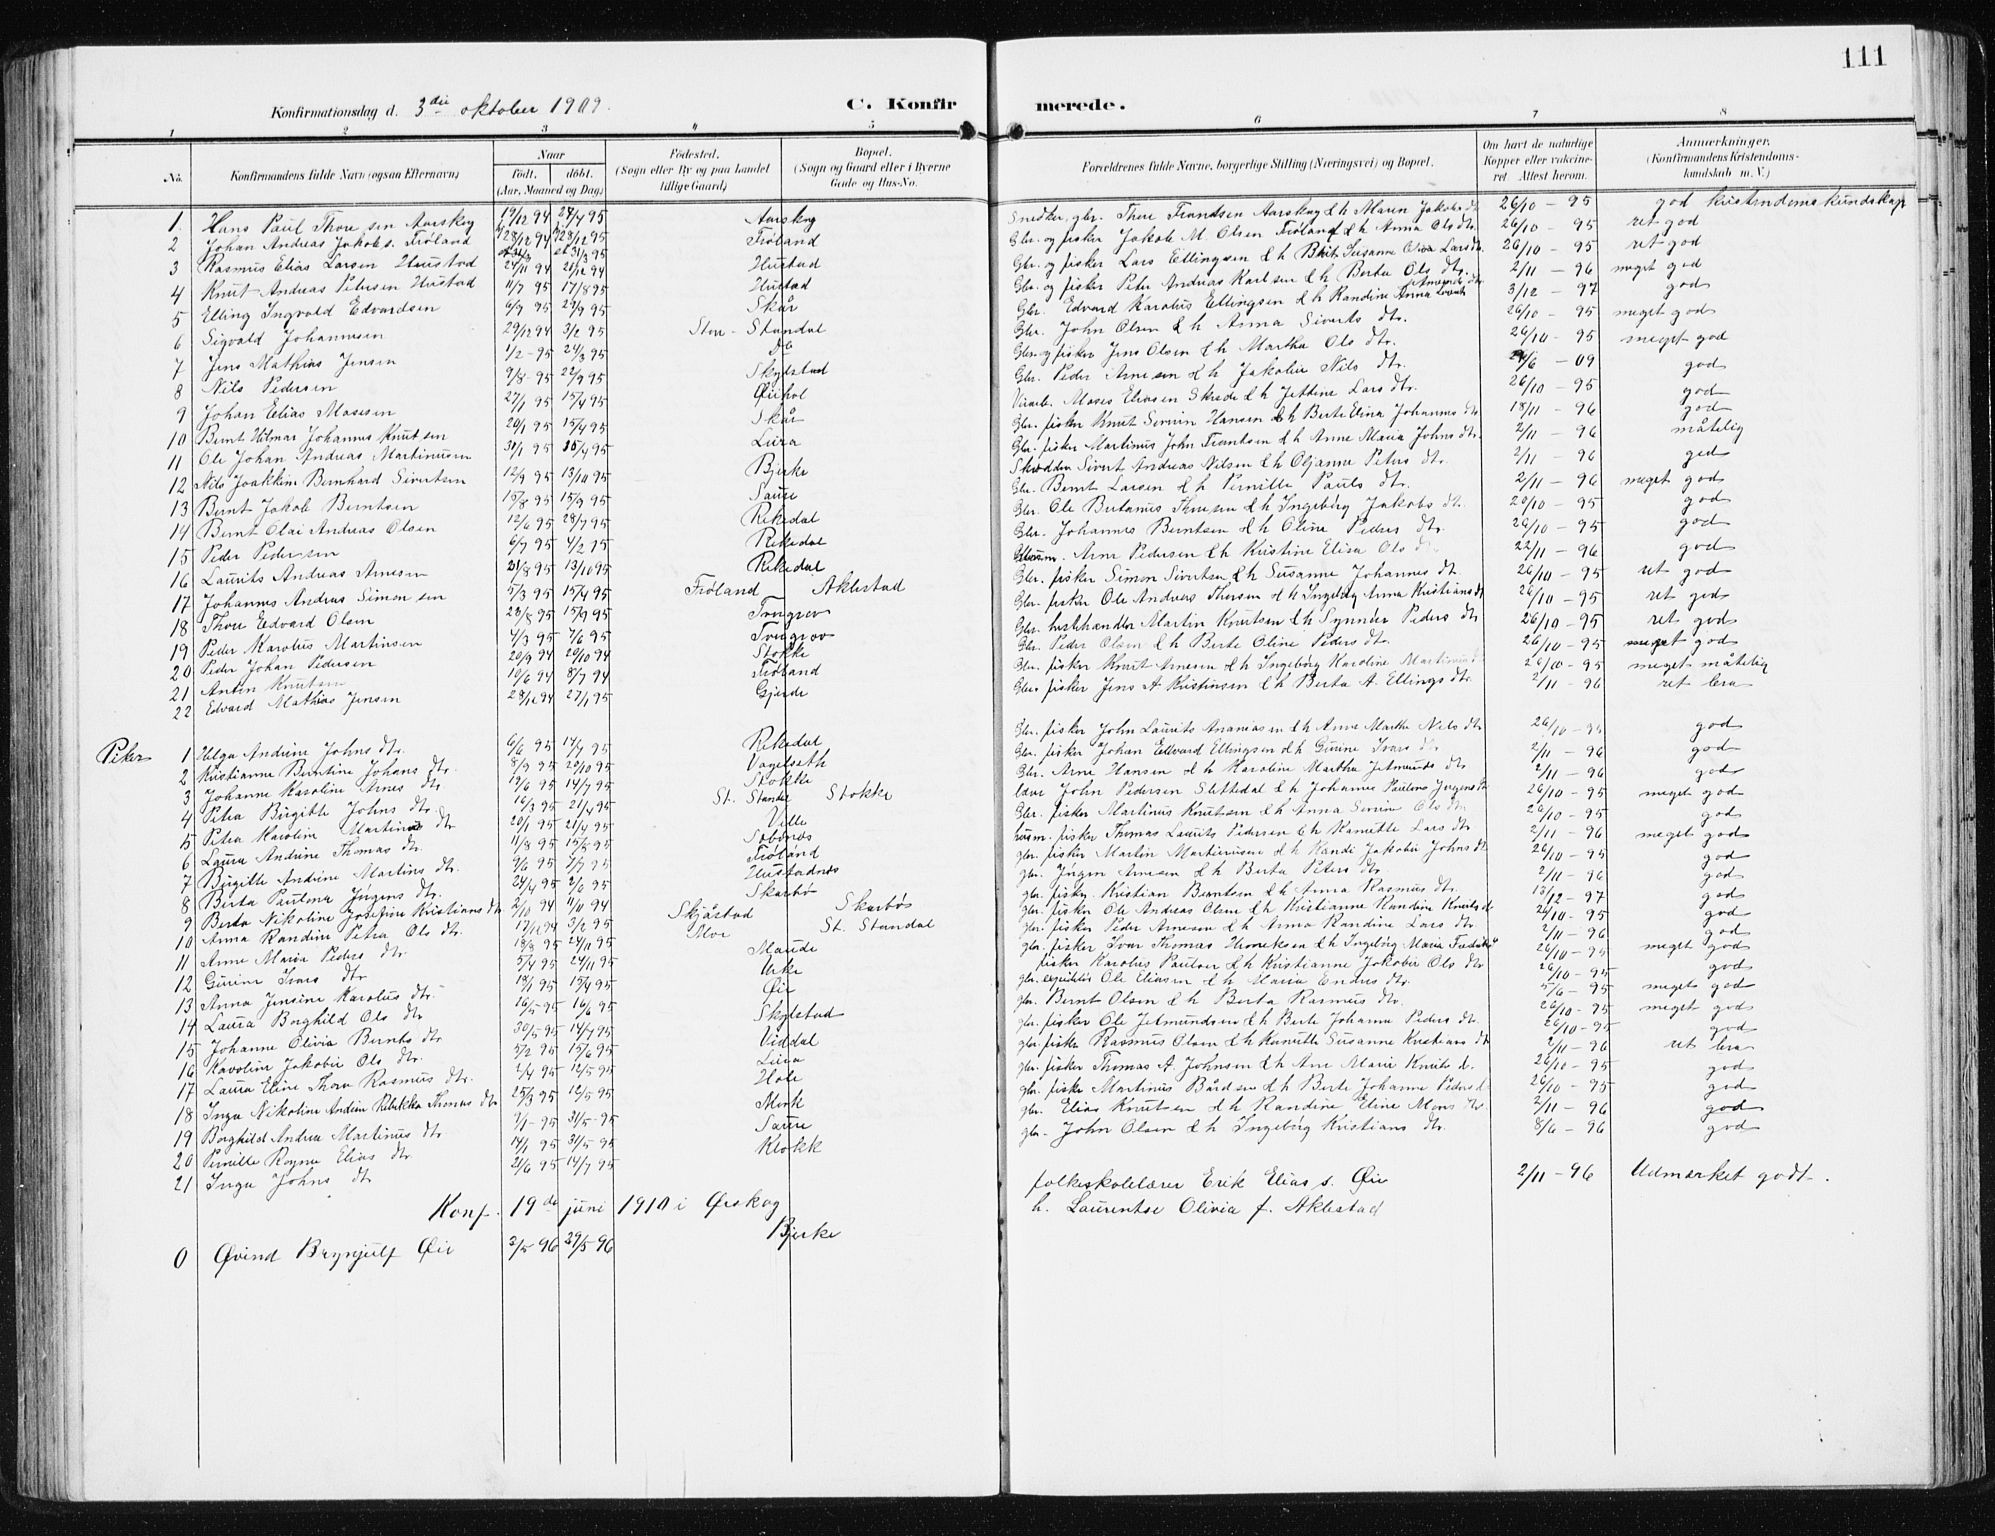 111
Konfirmationsdag d. 3die oktober 1909. C. Konfirmerede.
1 2 3 4 5 6 7 8
No. Konfirmandens fulde Navn (ogsaa Efternavn) Naar født. døbt. (Aar, Maaned og Dag) Fødested. (Sogn eller By og paa Landet tillige Gaard) Bopæl. (Sogn og Gaard eller i Byerne Gade og Hus-No. Forældrenes fulde Navne, borgerlige Stilling (Næringsvei) og Bopæl. Om havt de naturlige Kopper eller vakcineret. Attest herom. Anmærkninger. (Konfirmandens Kristendomskundskab m. V.)
1. Hans Paul Thoresen Aarskog 19/12 94 24/4 95 Aarskog Snedker, gbr. Thore Frandsen Aarskog & h Maren Jakobs dt 26/10 - 95 god kristendomskundskap
2 Johan Andreas Jakobs. Frøland 28/12 94 28/12 95 Frøland Gbr. og fisker Jakob M. Olsen Frøland & h Anna Ols dt. 26/10 - 95 ret god
3 Rasmus Elias Larsen Hustad 24/11 94 21/12 94 Hustad Gbr. og fisker Lars Ellingsen & h Susanne Lars dt. 26/10 - 95 ret god
4 Knut Andreas Petersen Hustad 11/7 95 17/8 95 Hustad Gbr. og fisker Peter Andreas Karlsen & h Berta Ols dtr. 2/11 - 96 meget god
5 Elling Ingvald Edvardsen 6/9 95 29/9 95 Skår Gbr. Edvard Karolus Ellingsen & h Randine Anna 3/12 - 97 god
6 Sigvald Johannesen 29/12 94 3/2 95 Store-Standal Gbr. John Olsen & h Anna Siverts dtr. 26/10 - 95 meget god
7 Jens Mathias Jensen 1/2 - 95 24/3 95 do Gbr. og fisker Jens Olsen & h Martha Ols dtr. 26/10 - 95 meget god
8 Nils Pedersen 9/8 - 95 22/9 95 Skylstad Gbr. Peder Arnesen & h Jakobie Nils dtr. /6 - 09 god
9 Johan Elias Mosesen 27/1 95 15/4 95 Moses Eliasen Skrede & h Jettine Lars dtr. 26/10 - 95 god
10 Bernt Hilmar Johannes Knutsen 20/1 95 15/4 95 Skår Gbr. fisker Knut Severin Hansen & h Berte Elina Johannes dt 18/11 - 96 god
11 Ole Johan Andreas Martinusen 30/1 95 /4 95 Lura Gbr. fisker Martinus John Frantsen & h Anne Maria Johns dtr. 2/11 - 96 måtelig
12 Nils Joakkim Bernhard Sivertsen 12/9 95 13/10 95 Bjerke Skrædder Sivert Andreas Nilsen & h Oljanna Peters dtr. 2/11 - 96 god
13 Bernt Jakob Berntsen 15/8 95 15/9 95 Saure Gbr. Bernt Larsen & h Pernille Pauls dtr. 2/11 - 96 meget god
14 Bernt Olai Andreas Olsen 12/6 95 28/7 95 Rekedal Gbr. Ole Bertanus Thoresen & h Ingebørg Jakobs dt. 20/10 - 95 god
15 Peder Pedersen 6/7 95 4/2 Rekedal Gbr. Johannes Berntsen & h Oline Peders dtr. 26/10 - 95 god
16 Laurits Andreas Arnesen 21/8 95 13/10 95 Rekedal Arne Pedersen & h Kristine Elisa Ols dtr 22/11 - 96 god
17 Johannes Andreas Simonsen 5/3 95 15/4 95 Frøland Aklestad Gbr. fisker Simon Sivertsen & h Susanne Johannes dt 26/10 - 95 ret god
18 Thore Edvard Olsen 23/8 95 15/9 95 Gbr. fisker Ole Andreas Thoresen & h Ingebørg Anna Kristians dt 26/10 - 95 ret god
19 Peder Karolus Martinsen 4/3 95 7/6 95 Gbr. hestehandler Martin Knutsen & h Synnøve Peders dtr 26/10 - 95 ret god
20 Peder Johan Pedersen 20/9 94 20/10 94 Stokke Gbr. Peder Olsen & h Berte Oline Peders dtr. 26/10 - 95 meget god
21 Anton Knutsen 10/6 94 8/7 94 Frøland Gbr. fisker Knut Arnesen & h Ingebørg Karoline Martinus d 26/10 - 95 meget måtelig
22 Edvard Mathias Jensen 28/12 94 27/1 95 Gjerde Gbr. fisker Jens A Kristinsen & h Berta A. Ellings dtr. 2/11 - 96 ret bra
Piker 1 Helga Andrine Johns dtr. 6/6 95 14/7 95 Rekedal Gbr. fisker John Laurits Ananiasen & h Anne Martha Nils dtr 26/10 - 95 god
2 Kristianne Berntine Johans dtr. 8/9 95 20/10 95 Vagelseth Gbr. fisker Johan Edvard Ellingsen & h Gurine Ivars dtr 2/11 - 96 god
3 Johanne Karoline Arnes dtr. 19/6 95 14/7 95 Stokke Gbr. Arne Hansen & h Karoline Martha Jetmunds dtr. 2/11 - 96 god
4 Petra Birgitte Johns dtr. 16/3 95 21/4 95 St. Standal Stokke John Pedersen Slettedal & h Johanne Pauline Jørgens dt 26/10 - 95 meget god
5 Petra Karoline Martinus dtr 20/1 95 21/4 95 Ville Gbr. fisker Martinus Knutsen & h Anna Serine Ols dtr. 26/10 - 95 god
6 Laura Andrine Thomas dtr. 11/8 95 15/5 95 Sæbønes husm. fisker Thomas Laurits Pedersen & h Kamille Lars dtr 2/11 - 96 meget god
7 Birgitte Andrine Martins dtr. 9/6 95 7/7 95 Frøland gbr. fisker Martin Martinusen & h Randi Jakobie Johns dtr 26/10 - 95 god
8 Berta Paulina Jørgens dtr. 24/4 95 2/6 95 Hustadnes gbr. Jørgen Arnesen & h Berta Peters dtr. 2/11 - 96 god
9 Berta Nikoline Josefine Kristians dtr 2/10 94 11/11 94 Skarbø gbr. fisker. Kristian Berntsen & h Anna Rasmus dtr. 13/12 - 97 god
10 Anna Randine Petra Ols dtr. 17/12 94 3/2 95 Skjåstad Skarbøs gbr. fisker Ole Andreas Olsen & h Kristianne Randine Knuts d 26/10 - 95 god
11 Anne Marie Peders dtr. 18/8 95 24/11 95 Mo St. Standal gbr. fisker Peder Arnesen & h Anna Randine Lars dtr 2/11 - 96 god
12 Gurine Ivars dtr 5/4 95 24/11 95 Maude gbr. fisker Ivar Thomas & h Ingebørg Maria 26/10 - 95 meget god
13 Anna Jensine Karolus dtr. 19/1 95 15/4 95 Urke fisker Karolus Paulsen & h Kristianne Jakobie Ols dtr 26/10 - 95 god
14 Laura Borghild Ols dtr 16/5 - 95 16/6 95 Øie gbr. Ole Eliasen & h Maria Endres dtr. 5/6 - 95 meget god
15 Johanne Olivia Bernts dtr 30/5 - 95 14/7 95 Skylstad gbr. Bernt Olsen & h Berta Rasmus dtr. 26/10 - 95 meget god
16 Karoline Jakobie Ols dtr. 5/2 95 15/6 95 Viddal gbr. fisker Ole Jetmundsen & h Berte Johanne Peders dtr. 26/10 - 95 god
17 Laura Eline Thora Rasmus dtr. 2/4 95 12/5 95 Lura gbr. fisker Rasmus Olsen & h Kamille Susanne Kristians dtr 2/11 - 96 ret bra
18 Inga Nikoline Andrine Rebekka Thomas dtr 25/3 95 12/5 95 Hole gbr. fisker Thomas A. Johnsen & h Ane Marie Knuts d. 26/10 - 95 god
19 Borghild Andrea Martinus dtr 7/1 - 95 31/5 - 95 Mork gbr. fisker Martinus Bårdsen & h Berte Johanne Peders d 26/10 - 95 god
20 Pernille Ragna Elias dtr. 14/1 95 31/5 95 Saure gbr. Elias Knutsen & h Randine Eline Mons dtr. 2/11 - 96 god
21 Inga Johns dtr 21/6 95 14/7 95 Klokk gbr. John Olsen & h Ingebørg Kristians dtr. 8/6 - 96 god
Konf. 19de juni 1910 i Ørskog
0 Øvind Brynjulf Øie 3/5 96 29/5 96 Bjerke folkeskolelærer Erik Elias s. Øie 2/11 - 96 Udmerket godt.
h. Laurentse Olivia f. Aklestad